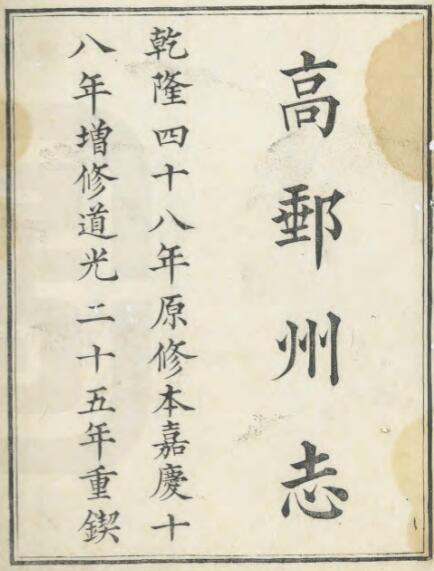 高郵州志
乾隆四十八年原修本嘉慶十
八年增修道光二十五年重鍥